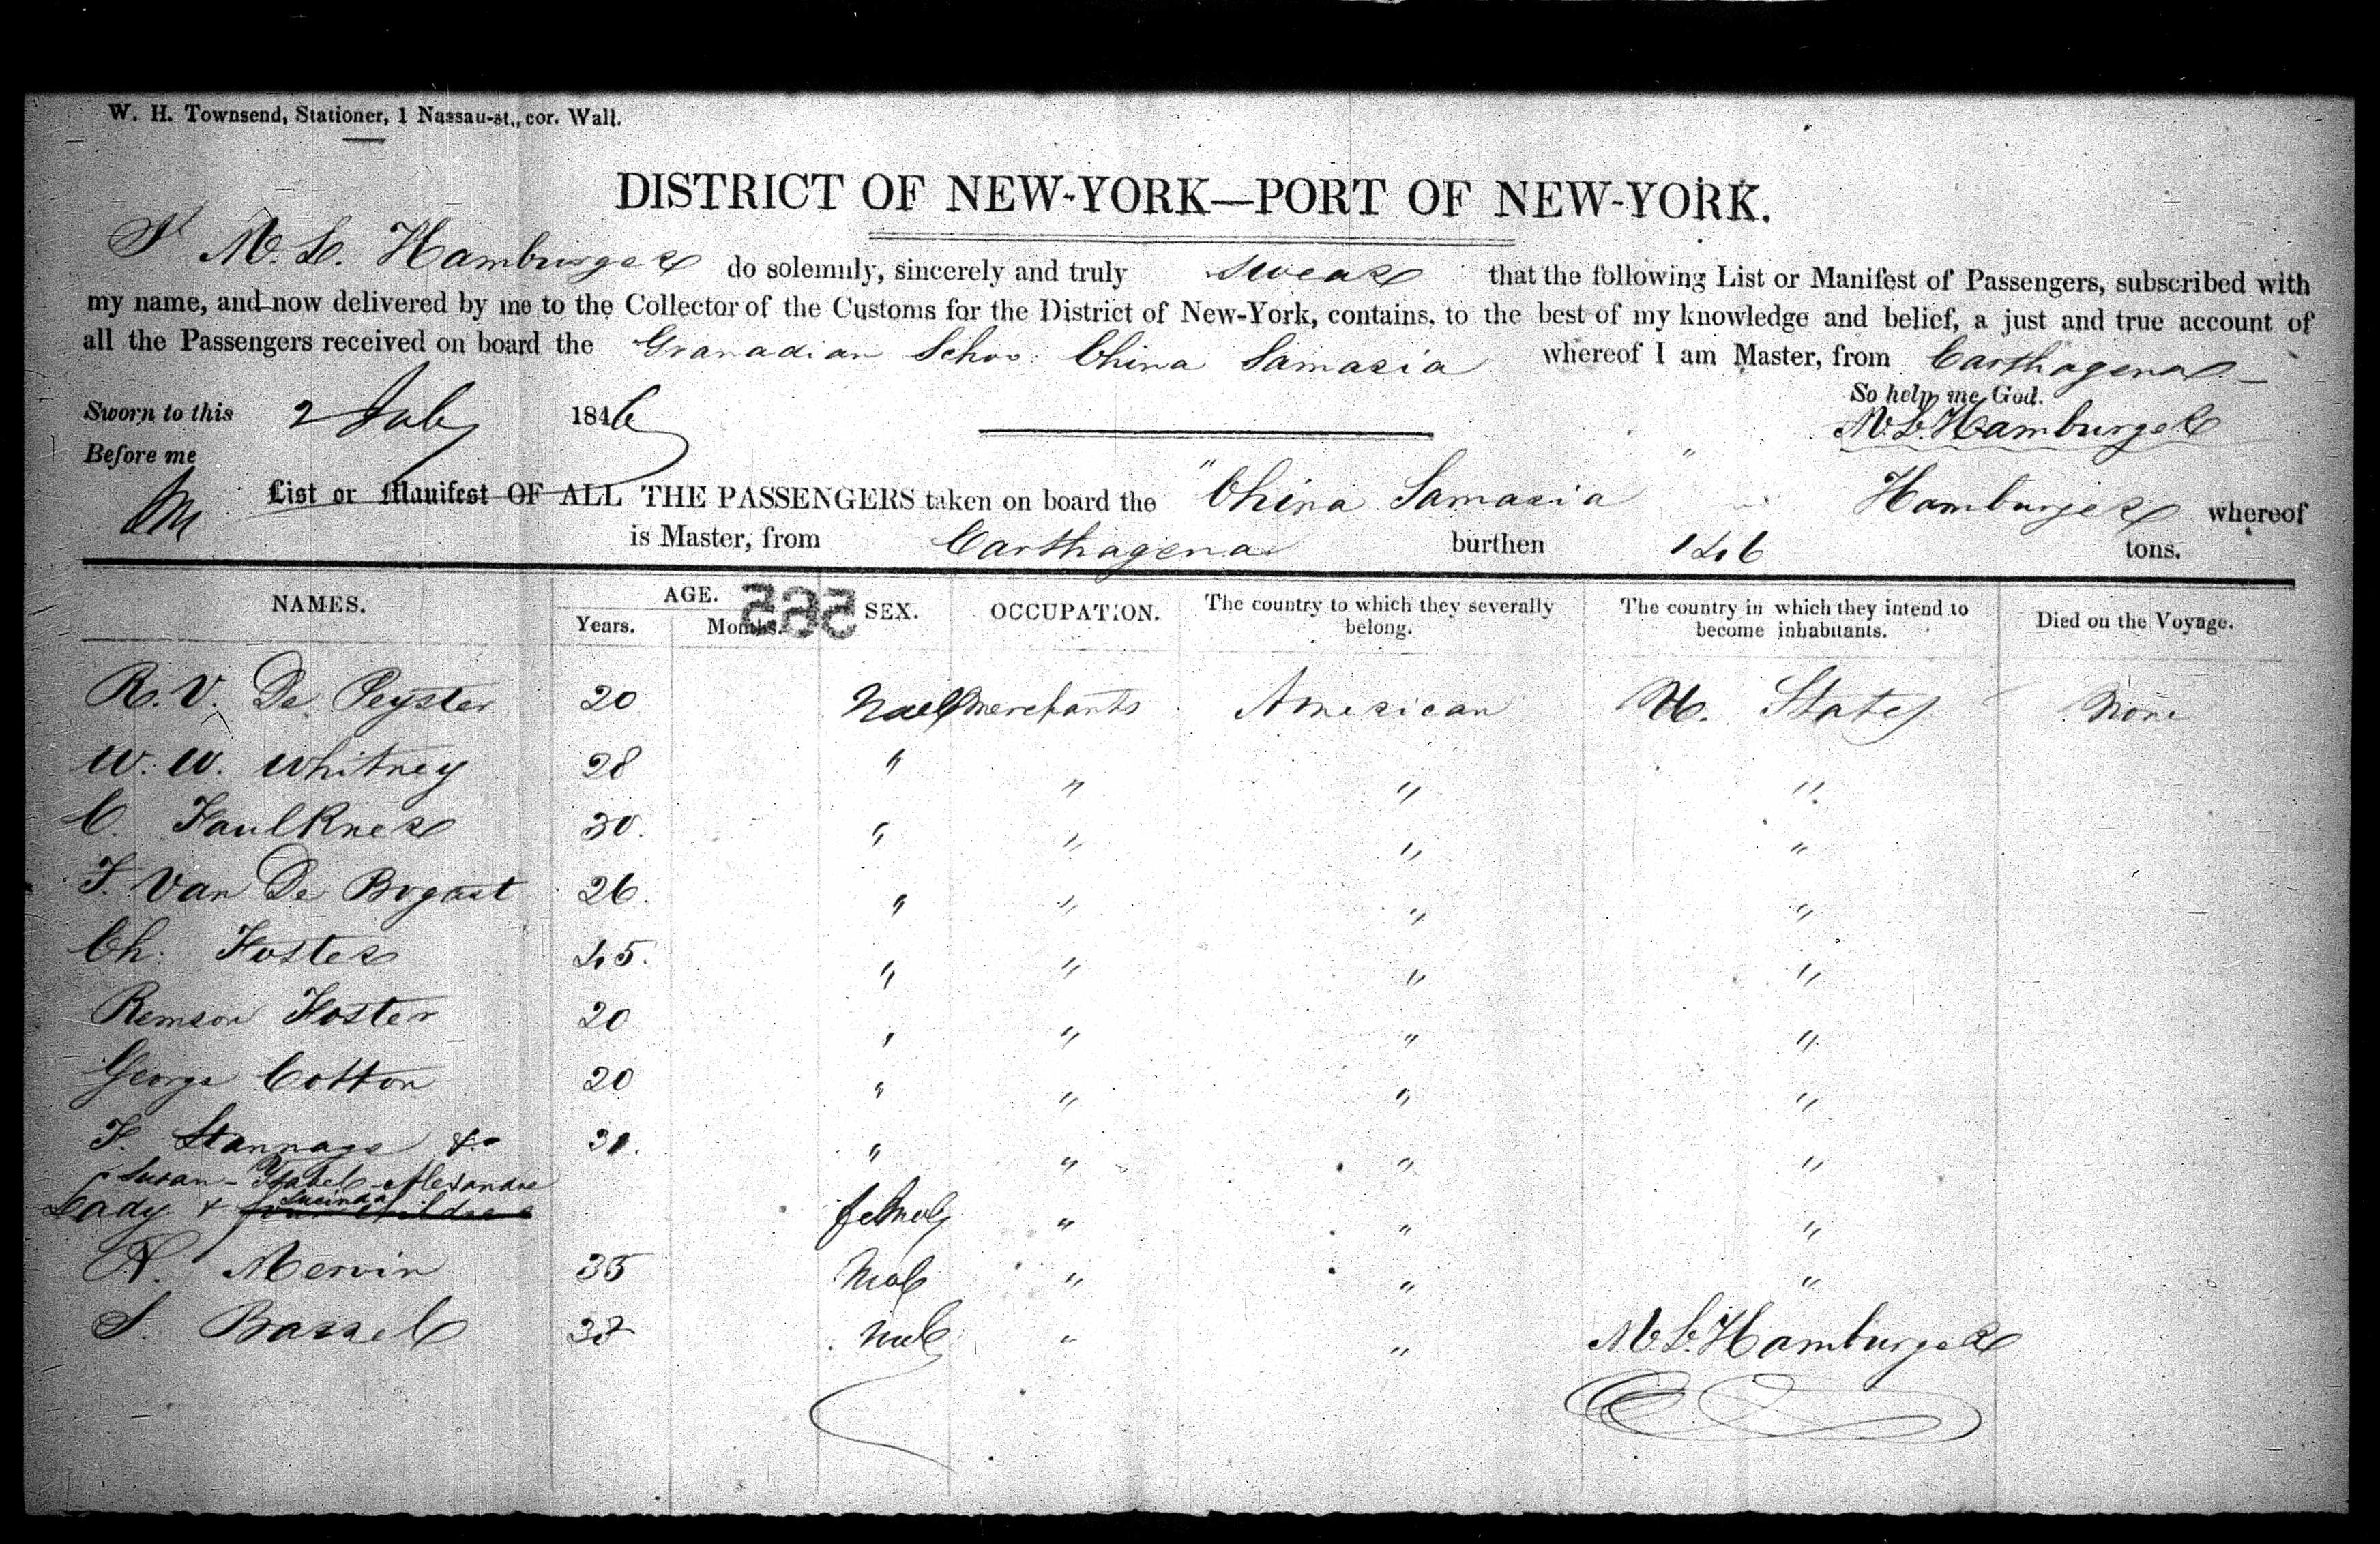 W. H. Townsend, Stationer, 1 Nassau-st., cor. Wall.
DISTRICT OF NEW-YORK—PORT OF NEW-YORK.
I M. L. Hamburger do solemnly, sincerely and truly swear that the following List or Manifest of Passengers, subscribed with
my name, and now delivered by me to the Collector of the Customs for the District of New-York, contains, to the best of my knowledge and belief, a just and true account of
all the Passengers received on board the Granadian Schoo. China Samaria whereof I am Master, from Carthagena
So help me God.
Sworn to this 2 July 1846 M. L. Hamburger
Before me
List or Manifest OF ALL THE PASSENGERS taken on board the "China Samaria " Hamburger whereof
is Master, from Carthagena burthen 146 tons.
NAMES. AGE. 595 SEX. OCCUPATION. The country to which they severally belong. The country in which they intend to become inhabitants. Died on the Voyage.
Years. Months.
R. V. De Peyster 20 Male merchants American U. States None
W. W. Whitney 28 " " " "
C. Faulkner 30. " " " "
F. Van De Bogart 26. " " " "
Ch. Foster 45. " " " "
Remson Foster 20 " " " "
George Cotton 20 " " " "
F. Stannage & 31. " " " "
Susan - Ysabel - Alexandre
Lucinda
Lady & four children female " " "
A. Mervin 35 Male " " "
S. Bassel Male " "
M. L. Hamburger